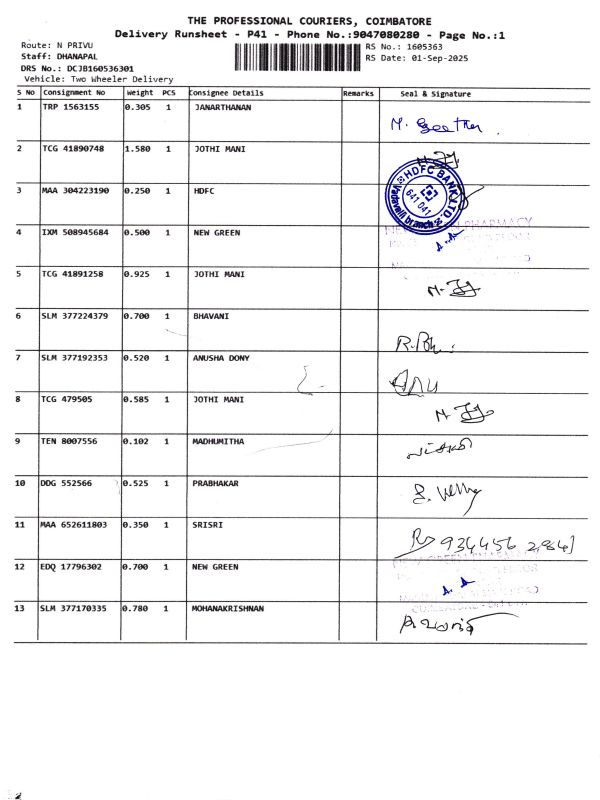 THE PROFESSIONAL COURIERS, COIMBATORE
Delivery Runsheet - P41 - Phone No.:9047080280 - Page No.:1
Route: N PRIVU
RS No.: 1605363
Staff: DHANAPAL
RS Date: 01-Sep-2025
DRS No.: DCJB160536301
Vehicle: Two Wheeler Delivery
S No Consignment No Weight PCS Consignee Details Remarks Seal & Signature
1 TRP 1563155 0.305 1 JANARTHANAN
M. Geetha
2 TCG 41890748 1.580 1 JOTHI MANI
3 MAA 304223190 0.250 1 HDFC
HDFC BANK LTD.
641 041
Vadavalli branch
4 IXM 508945684 0.500 1 NEW GREEN
PHARMACY
5 TCG 41891258 0.925 1 JOTHI MANI
6 SLM 377224379 0.700 1 BHAVANI
7 SLM 377192353 0.520 1 ANUSHA DONY
8 TCG 479505 0.585 1 JOTHI MANI
9 TEN 8007556 0.102 1 MADHUMITHA
10 DDG 552566 0.525 1 PRABHAKAR
11 MAA 652611803 0.350 1 SRISRI
934456 2984)
12 EDQ 17796302 0.700 1 NEW GREEN
13 SLM 377170335 0.780 1 MOHANAKRISHNAN